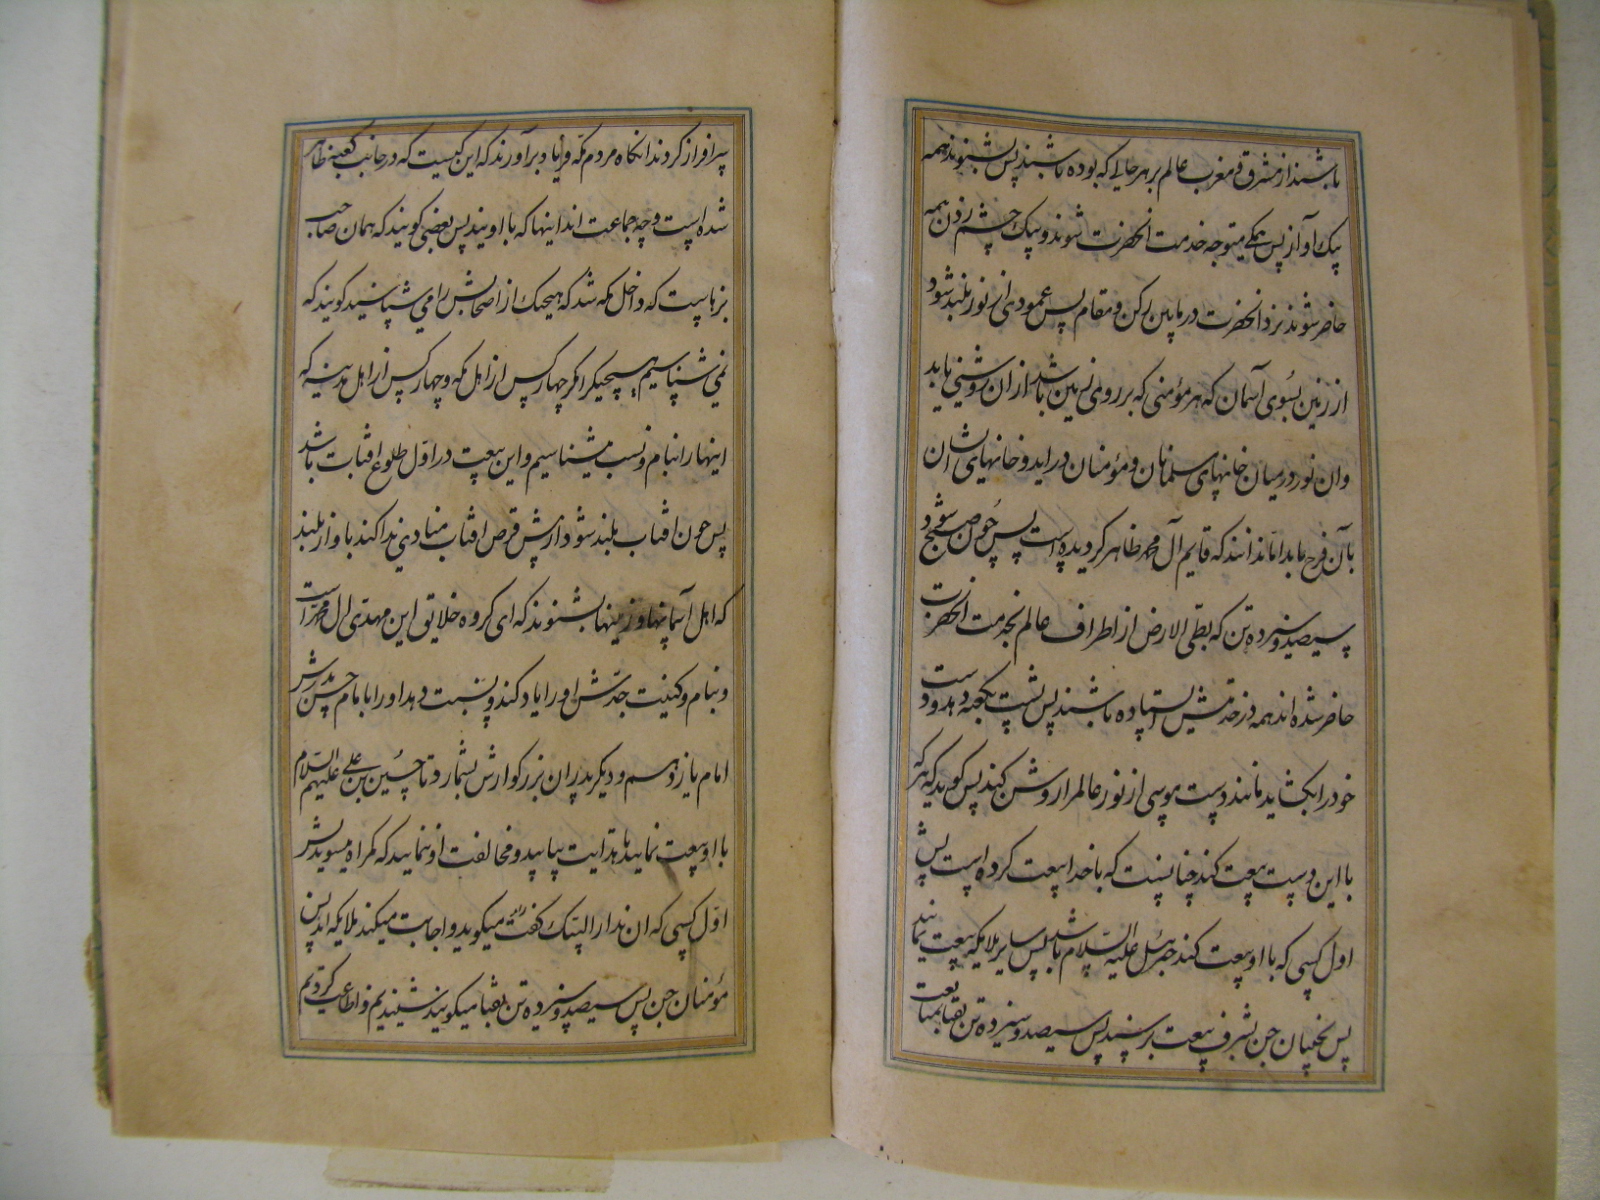 باشند از مشرق و مغرب عالم بر هر جائی که بوده باشند پس بشنوند همه
بیک آواز پس همگی متوجه خدمت انحضرت شوند و بیک چشم زدن همه
حاضر شوند نزد انحضرت در مابین رکن و مقام پس عمودی از نور بلند شود
از زمین بسوی آسمان که هر مؤمنی که بر روی زمین باشد از ان روشنی یابد
و ان نور در میان خانهای مسلمانان و مؤمنان در اید و خانهای ایشان
بآن فرح یابد اما ندانند که قایم آل محمد ظاهر کردیده است پس چون صبح شود
سیصد و سیزده تن که بطی الارض از اطراف عالم بخدمت انحضرت
حاضر شده اند همه در خدمتش ایستاده باشند پس پشت بکعبه دهد و دست
خود را بکشاید مانند دست موسی از نور عالم را روشن کند پس کوید که هر که
با این دست بیعت کند چنانست که با خدا بیعت کرده است پس
اول کسی که با او بیعت کند جبرئیل علیه السلام باشد پس سایر ملایکه بیعت نمایند
پس نجیبان جن بشرف بیعت برسند پس سیصد و سیزده تن نقبا بمتابعت
سرافراز کردند انکاه مردم مکه فریاد برآورند که این کیست که در جانب کعبه ظاهر
شده است و چه جماعت اند اینها که با اویند پس بعضی کویند که همان صاحب
بزهاست که داخل مکه شد که هیچیک از اصحابش را می شناسید کویند که
نمی شناسیم هیچیک را مکر چهار کس از اهل مکه و چهار کس از اهل مدینه که
اینها را بنام و نسب میشناسیم و این بیعت در اول طلوع افتاب باشد
پس چون افتاب بلند شود از پیش قرص افتاب منادی ندا کند باواز بلند
که اهل آسمانها و زمینها بشنوند که ای کروه خلایق این مهدی ال محمد است
و بنام و کنیت جدش او را یاد کند و نسبت دهد او را بامام حسن پدرش
امام یازدهم و دیکر پدران بزرکوارش بشمارد تا حسین بن علی علیهم السلام
با او بیعت نمایید تا هدایت بیابید و مخالفت او ننمایید که کمراه میشوید پس
اول کسی که ان ندا را لبیک کفته میکوید و اجابت میکند ملایکه اند پس
مؤمنان جن پس سیصد و سیزده تن نقبا میکویند شنیدیم و اطاعت کردیم